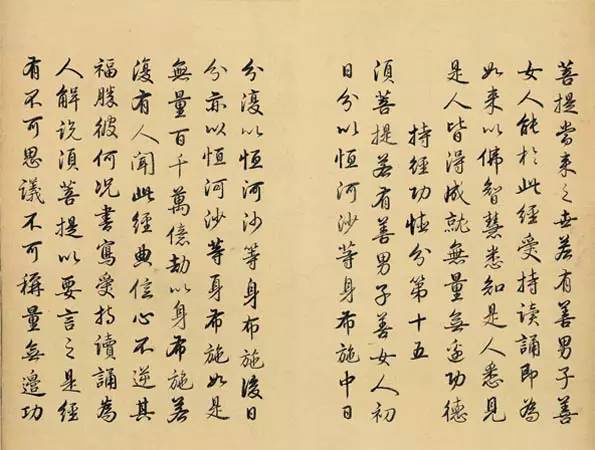 菩提當来之世若有善男子善
女人能於此經受持读誦即為
如来以佛智慧悉知是人悉見
是人皆得成就無量無邊功德
持經功德分第十五
須菩提若有善男子善女人初
日分以恒河沙等身布施中日
分復以恒河沙等身布施後日
分亦以恒河沙等身布施如是
無量百千萬億劫以身布施若
復有人聞此經典信心不逆其
福勝彼何况書寫受持讀誦為
人解說須菩提以要言之是經
有不可思議不可稱量無邊功